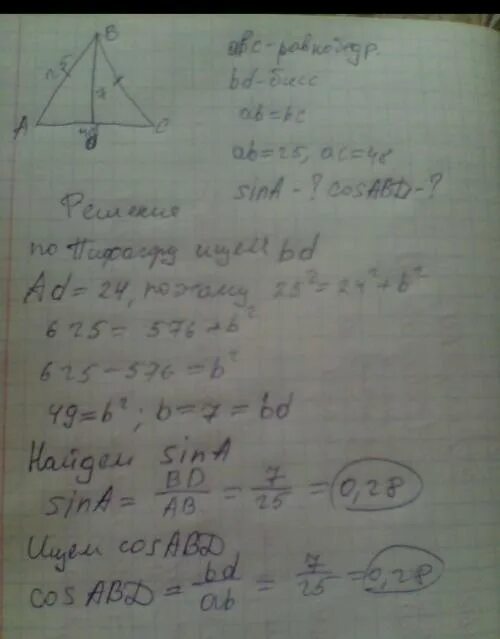 B
25
7
A
48
d
C
abc-равнобедр.
bd-бисс
ab=bc
ab=25, ac=48
sinA-? cosABD-?
Решение
по Пифагору ищем bd
Ad=24, поэтому 25²=24²+b²
625=576+b²
625-576=b²
49=b²; b=7=bd
Найдем sinA
sinA= BD/AB = 7/25 = 0,28
Ищем cosABD
cosABD= bd/ab = 7/25 =0,28